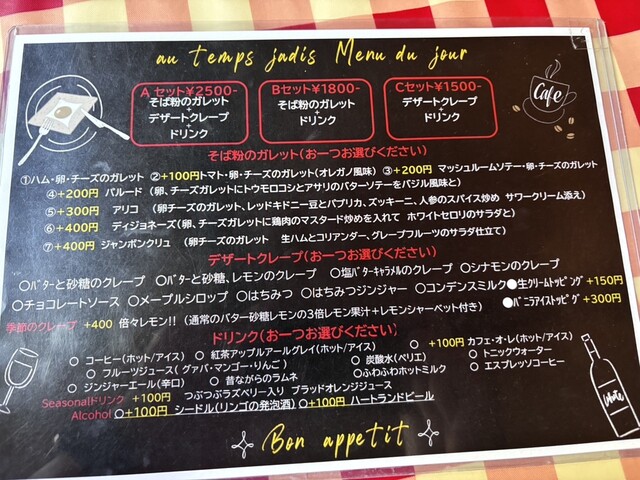 au temps jadis Menu du jour
Aセット¥2500-
そば粉のガレット
+
デザートクレープ
+
ドリンク
Bセット¥1800-
そば粉のガレット
+
ドリンク
Cセット¥1500-
デザートクレープ
+
ドリンク
Cafe
そば粉のガレット(お一つお選びください)
①ハム・卵・チーズのガレット ②+100円トマト・卵・チーズのガレット(オレガノ風味) ③+200円 マッシュルームソテー・卵・チーズのガレット
④+200円 パルード (卵、チーズガレットにトウモロコシとアサリのバターソテーをバジル風味と)
⑤+300円 アリコ (卵チーズのガレット、レッドキドニー豆とパプリカ、ズッキーニ、人参のスパイス炒め サワークリーム添え)
⑥+400円 ディジョネーズ(卵、チーズガレットに鶏肉のマスタード炒めを入れて ホワイトセロリのサラダと)
⑦+400円 ジャンボンクリュ (卵チーズのガレット 生ハムとコリアンダー、グレープフルーツのサラダ仕立て)
デザートクレープ(お一つお選びください)
〇バターと砂糖のクレープ 〇バターと砂糖、レモンのクレープ 〇塩バターキャラメルのクレープ 〇シナモンのクレープ
〇チョコレートソース 〇メープルシロップ 〇はちみつ 〇はちみつジンジャー 〇コンデンスミルク●生クリームトッピング+150円
季節のクレープ +400 倍々レモン!! (通常のバター砂糖レモンの3倍レモン果汁+レモンシャーベット付き) ●バニラアイストッピング+300円
ドリンク(お一つお選びください)
〇 コーヒー(ホット/アイス) 〇 紅茶アップルアールグレイ(ホット/アイス) 〇 +100円 カフェ・オ・レ(ホット/アイス)
〇 フルーツジュース(グァバ・マンゴー・りんご) 〇 炭酸水(ペリエ) 〇 トニックウォーター
〇 ジンジャーエール(辛口) 〇 昔ながらのラムネ 〇ふわふわホットミルク 〇 エスプレッソコーヒー
Seasonalドリンク +100円 つぶつぶラズベリー入り ブラッドオレンジジュース
Alcohol 〇+100円 シードル(リンゴの発泡酒) 〇+100円 ハートランドビール
Bon appetit